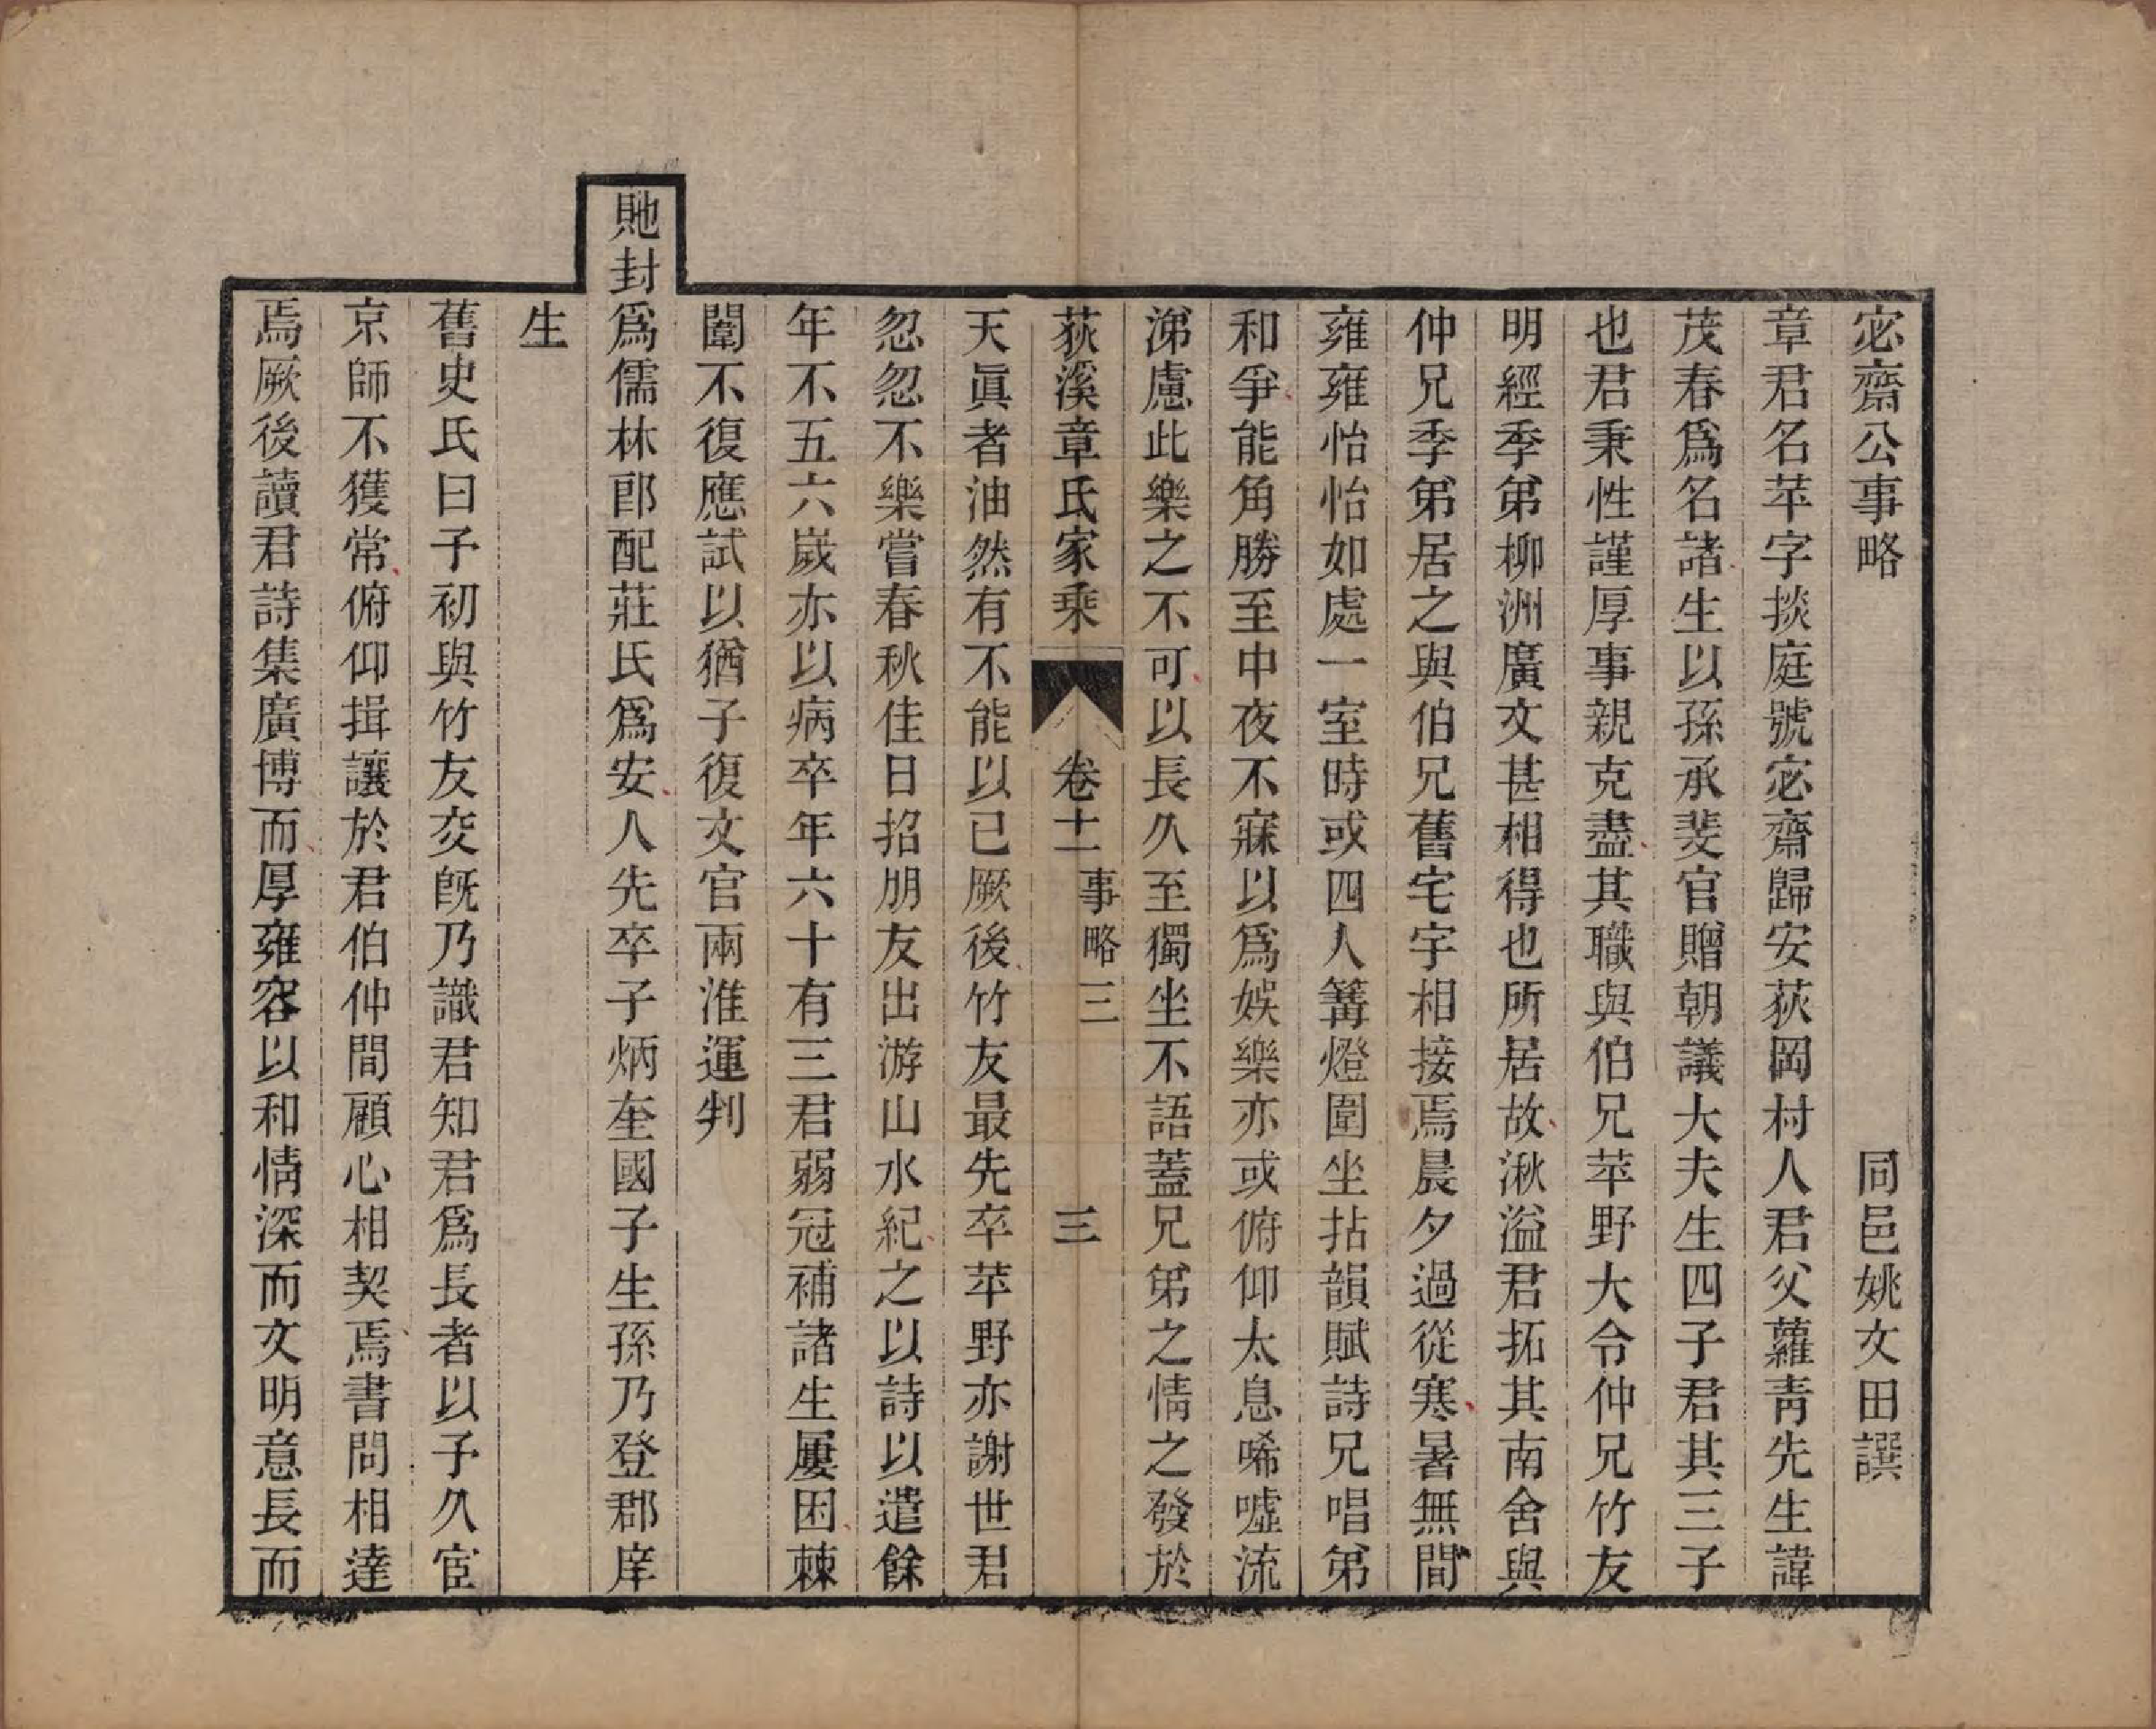 宓齋公事略 同邑姚文田譔
章君名苹字掞庭號宓齋歸安荻岡村人君父蘿靑先生諱
茂春爲名諸生以孫承斐官贈朝議大夫生四子君其三子
也君秉性謹厚事親克盡其職與伯兄苹野大令仲兄竹友
明經季弟柳洲廣文甚相得也所居故湫溢君拓其南舍與
仲兄季弟居之與伯兄舊宅宇相接焉晨夕過從寒暑無間
雍雍怡怡如處一室時或四人篝燈圍坐拈韻賦詩兄唱弟
和爭能角勝至中夜不寐以爲娛樂亦或俯仰太息唏噓流
涕慮此樂之不可以長久至獨坐不語蓋兄弟之情之發於
荻溪章氏家乘 卷十一 事略三 三
天眞者油然有不能以已厥後竹友最先卒苹野亦謝世君
忽忽不樂嘗春秋佳日招朋友出游山水紀之以詩以遣餘
年不五六歲亦以病卒年六十有三君弱冠補諸生屢困棘
闈不復應試以猶子復文官兩淮運判
貤封爲儒林郎配莊氏爲安人先卒子炳奎國子生孫乃登郡庠
生
舊史氏曰予初與竹友交旣乃識君知君爲長者以予久宦
京師不獲常俯仰揖讓於君伯仲間顧心相契焉書問相達
焉厥後讀君詩集廣博而厚雍容以和情深而文明意長而